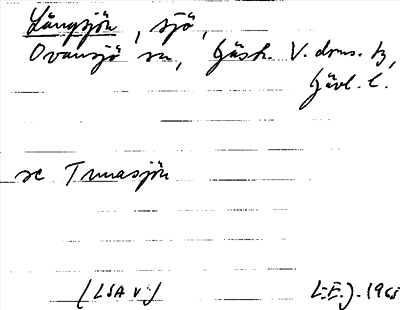 Långsjön, sjö,
Ovansjö sn, Gästr. V. doms. tg,
Gävl. l.
se Tunasjön
(LSA V:) L.E.J. 1965